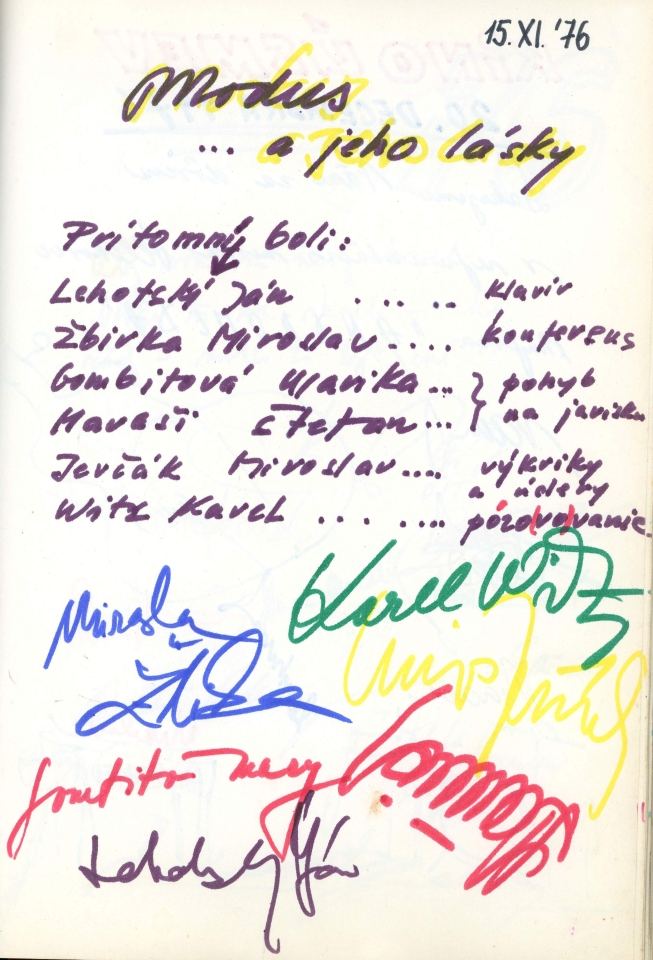 15. XI. '76
Modus
... a jeho lásky
Prítomný boli:
Lehotský Ján ..... klavír
Žbirka Miroslav.... konferans
Gombitová Marika... } pohyb
Havaši Štefan... na javisku
Jevčák Miroslav.... výkriky
a údery
Witz Karel ... .... pózdvdvanie.
Karel Witz
Miroslav
Žbirka
Gombito Mary
Lehotský Ján